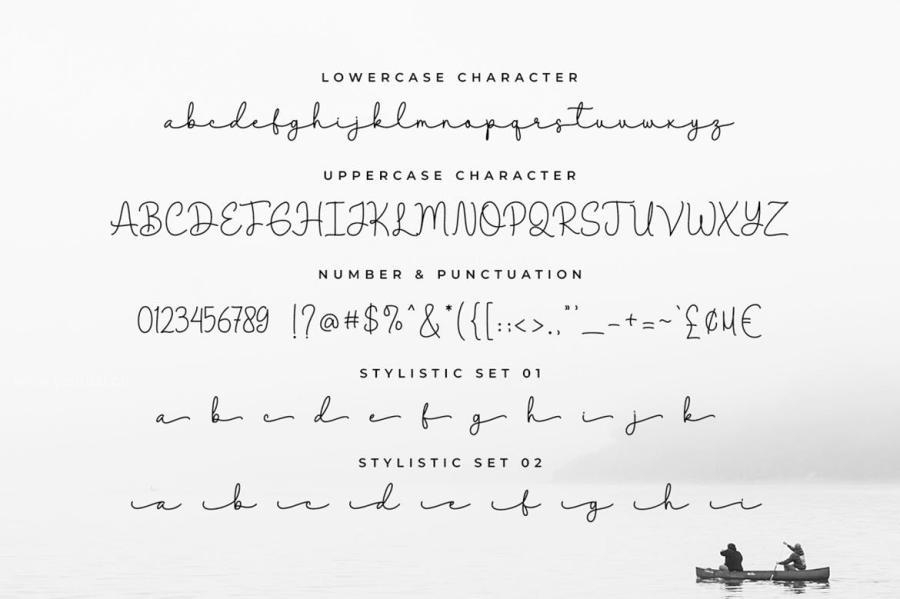 LOWERCASE CHARACTER
abcdefghijklmnopqrstuvwxyz
UPPERCASE CHARACTER
ABCDEFGHIJKLMNOPQRSTUVWXYZ
NUMBER & PUNCTUATION
0123456789 !?@#$%^&*({[:;<>.,"'_-+=~`£¢µ€
STYLISTIC SET 01
a b c d e f g h i j k
STYLISTIC SET 02
a b c d e f g h i